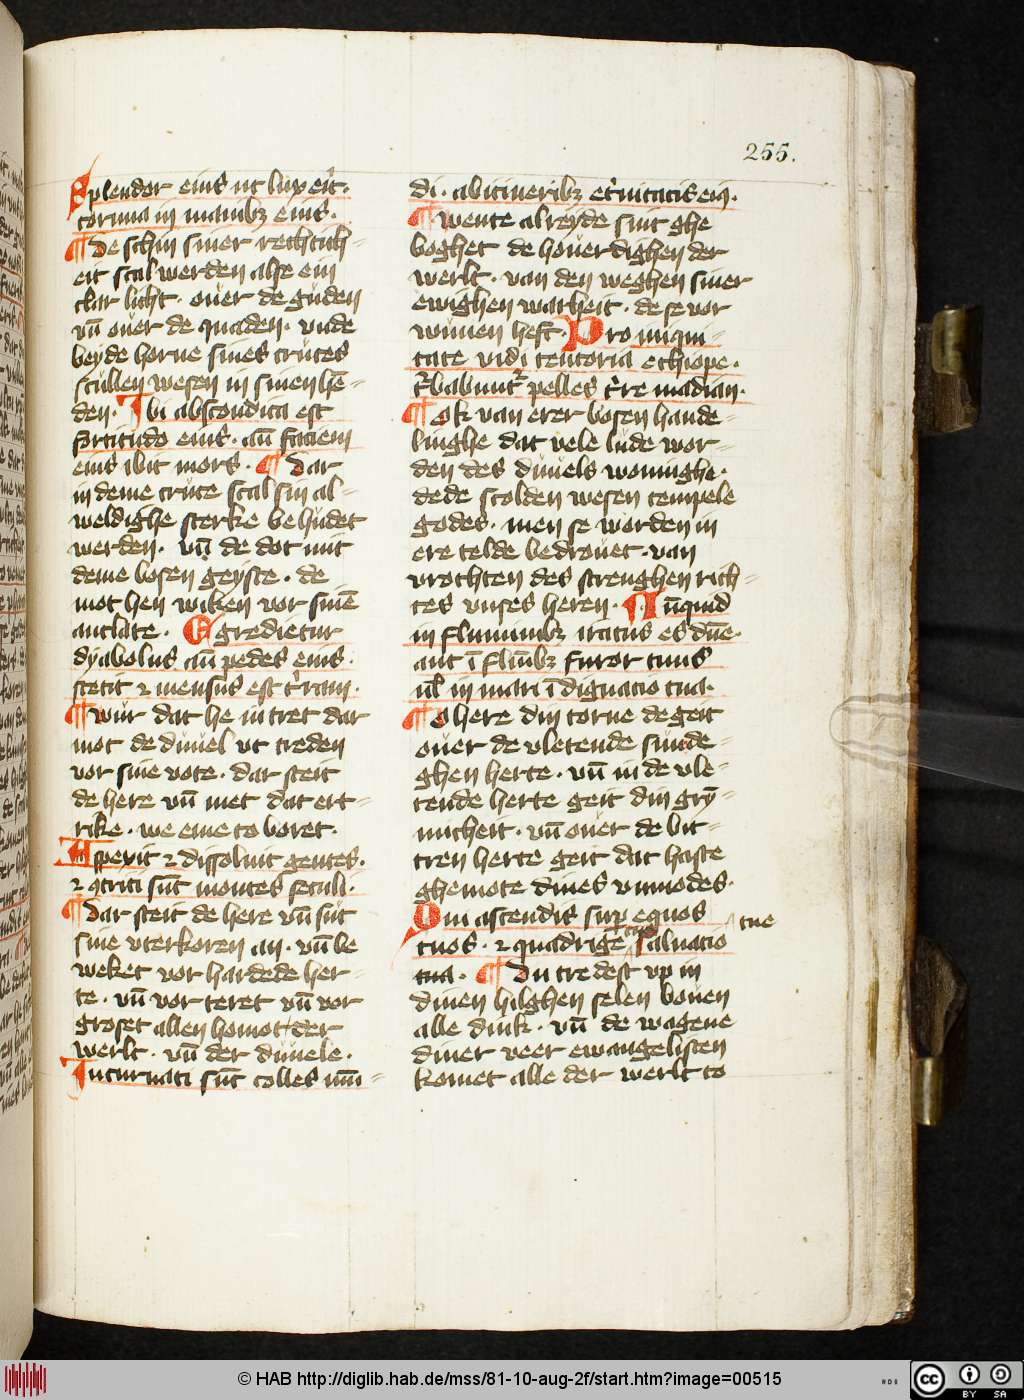 255.
Splendor eius ut lux erit.
cornua in manibz eius.
¶ De schin siner rechtich=
eit scal werden alse ein
clar licht. ouer de guden
vn̄ ouer de quaden. vnde
beyde horne sines crutes
scullen wesen in sinen hē=
den. Ibi abscondita est
fortitudo eius. an̄ faciem
eius ibit mors. ¶ Dar
in deme cruce scal sin al=
weldighe sterke behudet
werden. vn̄ de dot mit
deme bosen geyste. de
mot hen wiken vor sinē
antlate. Egredietur
dyabolus an̄ pedes eius.
stetit ⁊ mensus est t̄ram.
¶ Wur dat he in tret dar
mot de duuel vt treden
vor sine vote. dar steit
de here vn̄ met dat ert=
rike. we eme to boret.
Aspexit ⁊ dissoluit gentes.
⁊ ꝯtriti sūt montes seculi.
¶ Dar steit de here vn̄ sut
sine vterkoren an. vn̄ be
weket vor hardede her=
te. vn̄ vor teret vn̄ vor
groset allen homot der
werlt. vn̄ der duuele.
Incuruati sūt colles mū=
di. ab itineribz et̄nitatis eiꝰ.
¶ Wente alreyde sint ghe
boghet de houerdighen der
werlt. van den weghen siner
ewighen warheit. de se vor
wunnen heft. Pro iniqui=
tate vidi tentoria ethiopie.
t̄babunt̄ pelles t̄re madian.
¶ Ok van erer bosen hande=
linghe dat vele lude wor=
den des duuels woninghe.
de de scolden wesen tempele
godes. men se worden in
ere telde bedrouet. van
vrochten des strenghen rich=
tes vnses heren. Nūquid
in fluminibz iratus es dn̄e.
aut ī flūibz furor tuus
ul̄ in mari īdignacio tua.
¶ O here din torne de geit
ouer de vletende sunde=
ghen herte. vn̄ in de vle=
tende herte geit din gry̅=
micheit. vn̄ ouer de bit=
tren herte geit dat haste
ghemote dines vnmodes.
Qui ascendis suꝑ equos
tuos. ⁊ quadrige tue saluatio
tue
tua. ¶ Du tredest vp in
dinen hilghen selen bouen
alle dink. vn̄ de wagene
diner veer ewangelisten
komet alle der werlt to
© HAB http://diglib.hab.de/mss/81-10-aug-2f/start.htm?image=00515
cc BY SA